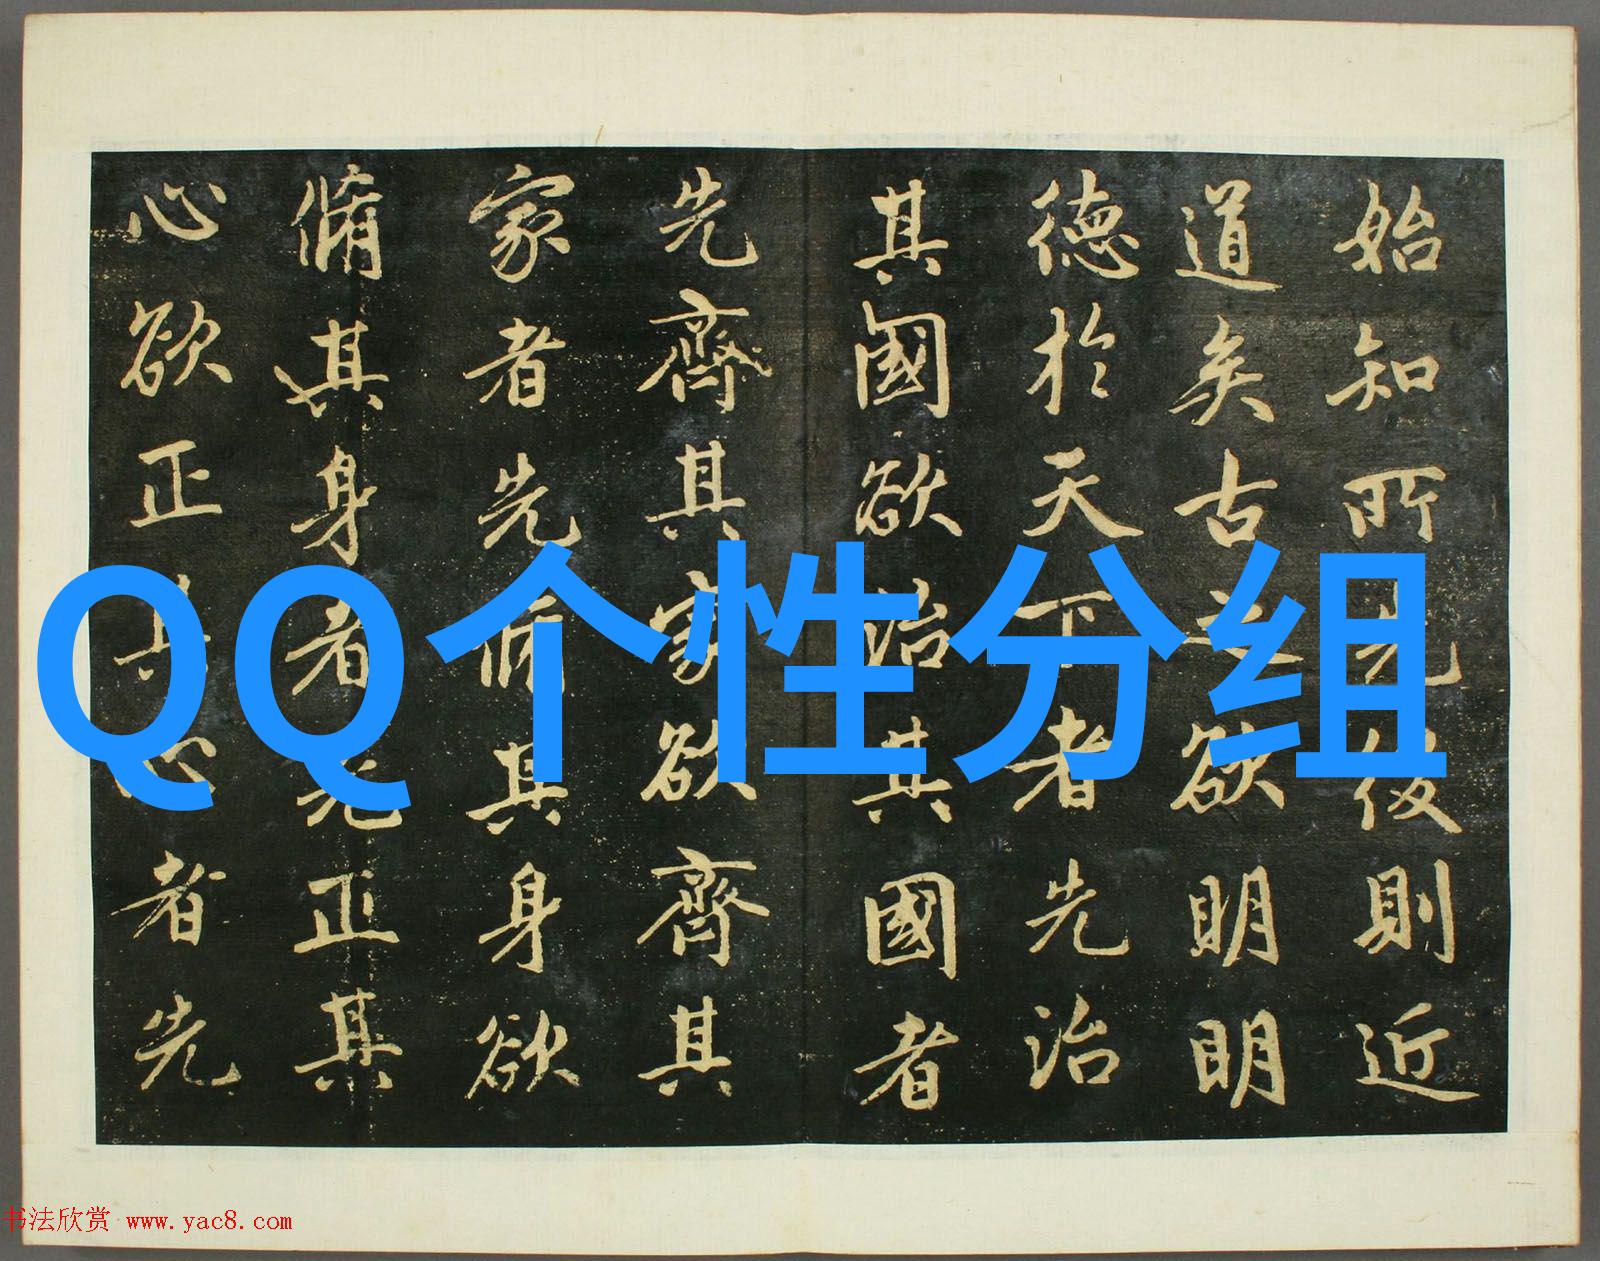 始知所先後則近
道矣古之欲明明
德於天下者先治
其國欲治其國者
先齊其家欲齊其
家者先脩其身欲
脩其身者先正其
心欲正其心者先
QQ个性分组
书法欣赏 www.yac8.com